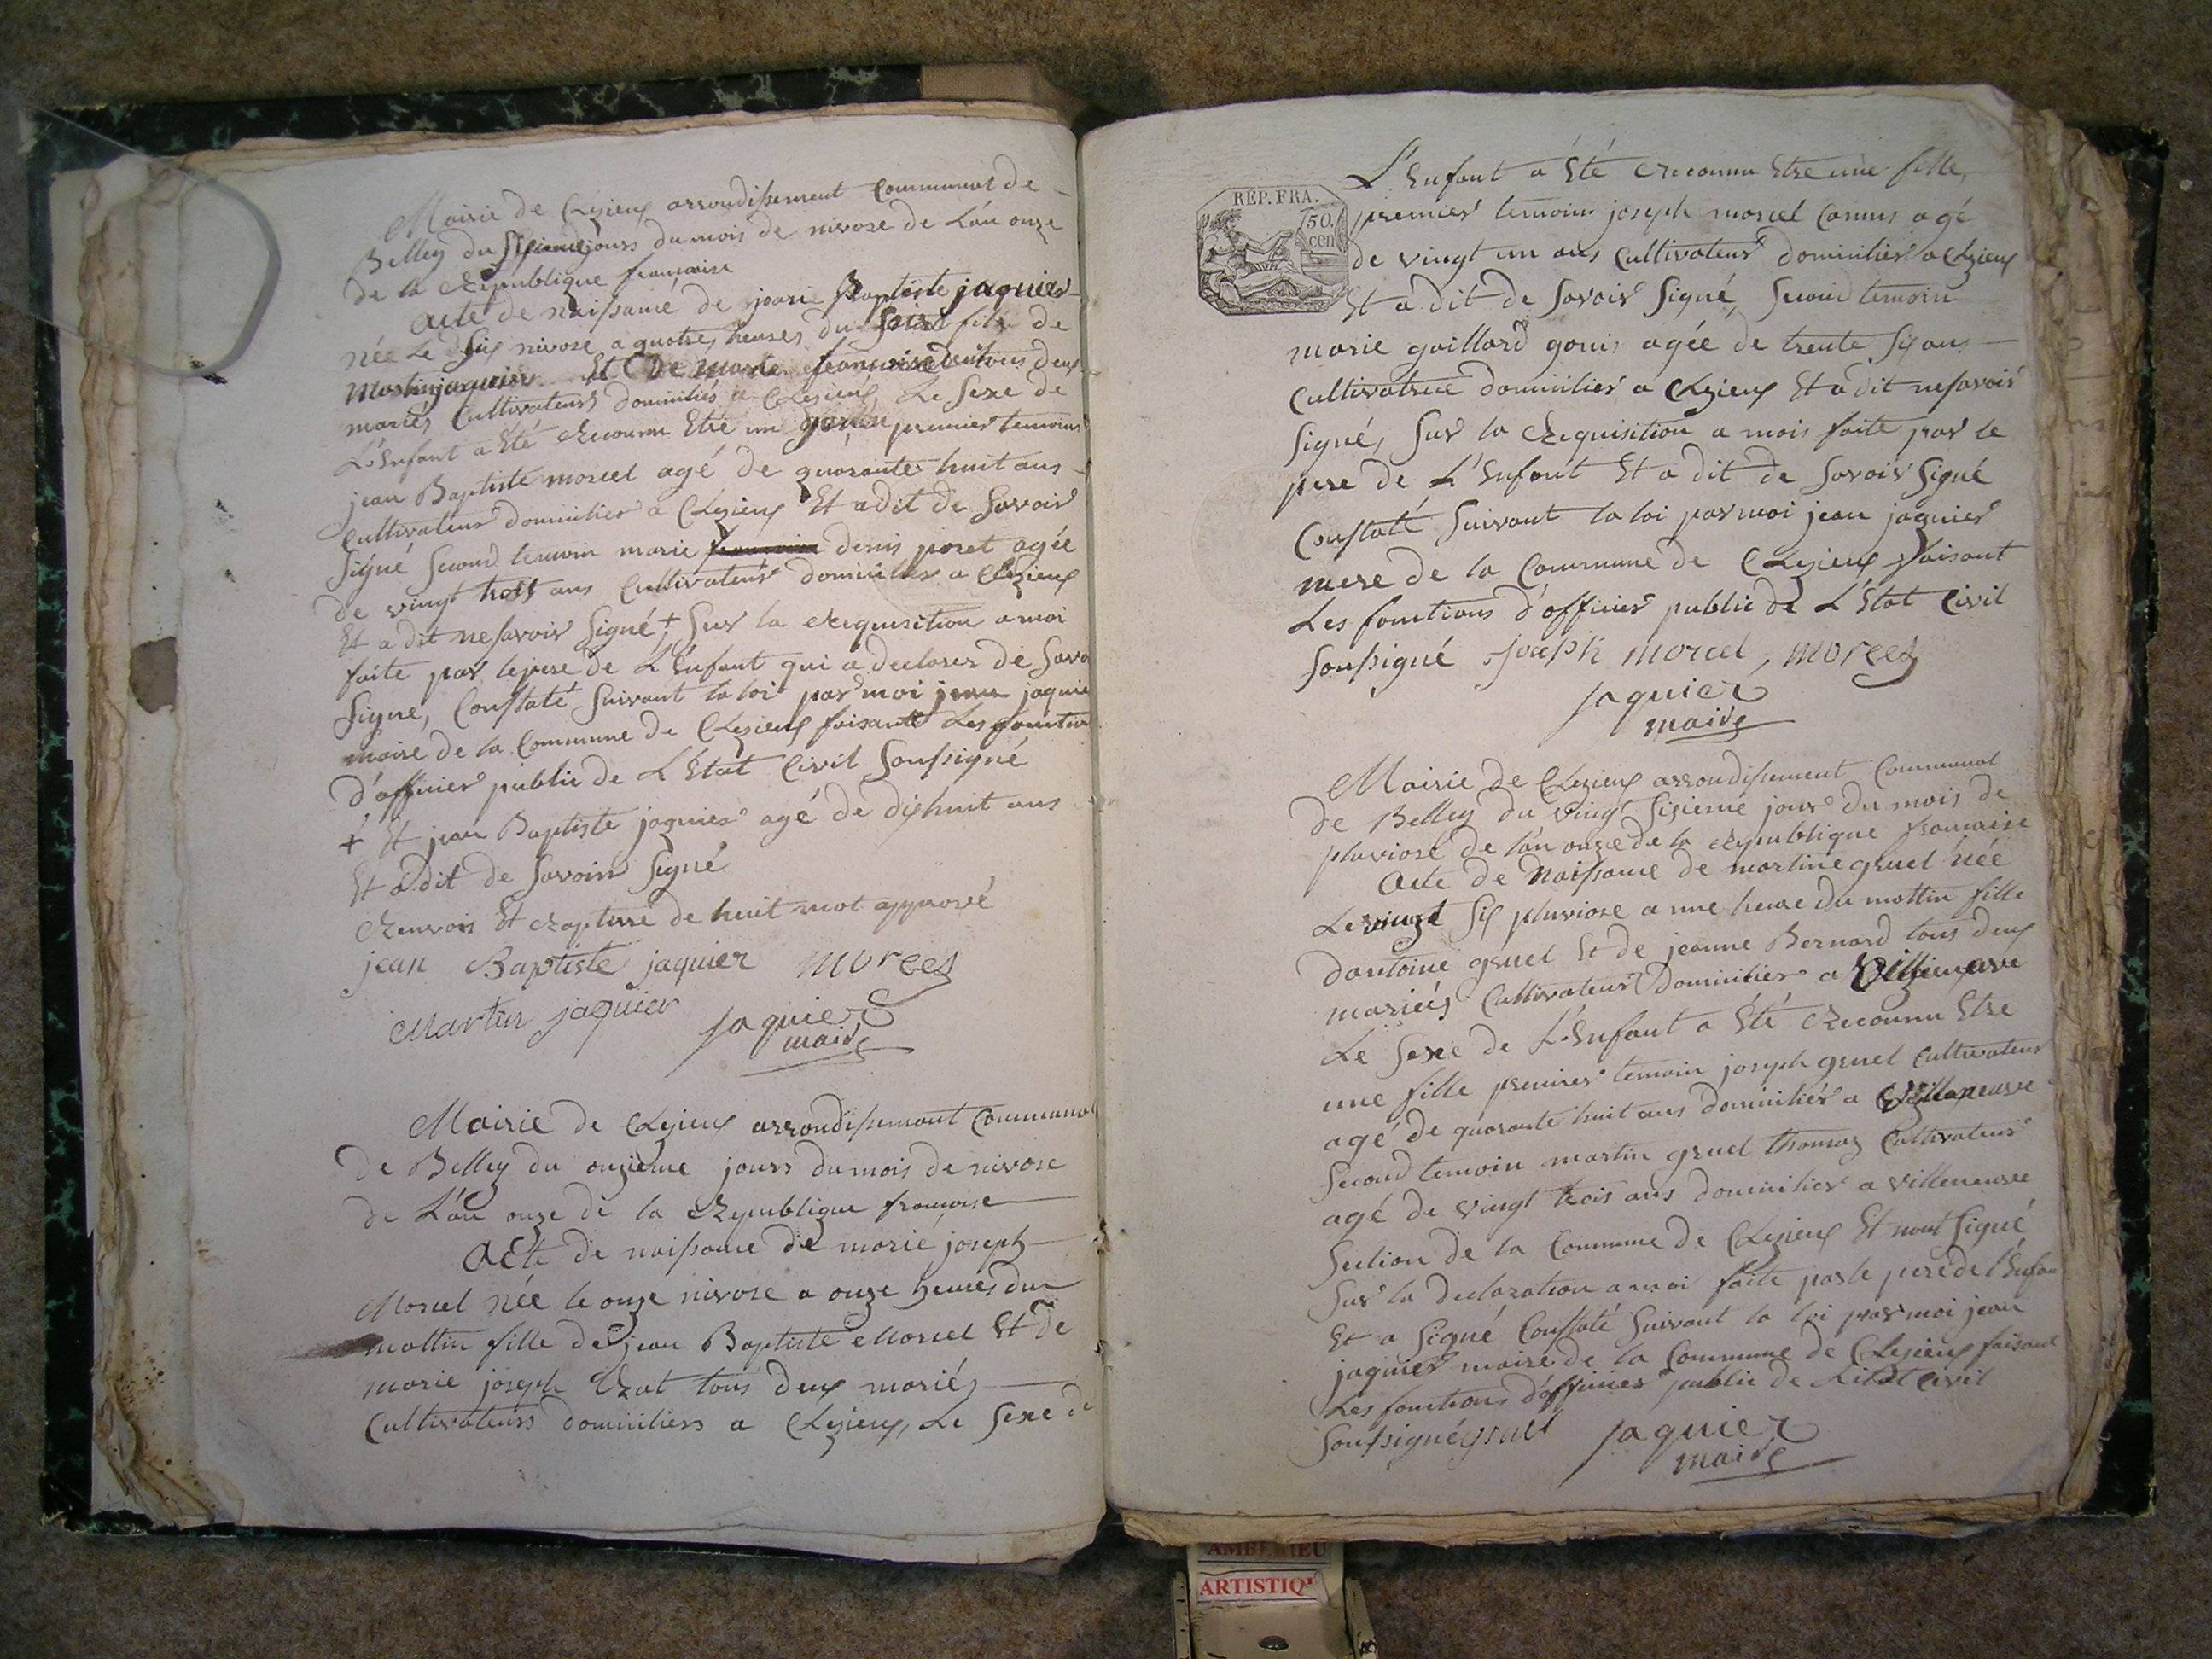 Mairie de Chezieux arrondissement Communal de
Belley du jours du mois de nivose de L'an onze
de la Republique francaise
acte de naissance de Baptiste jaquier
née Le Six nivose a quatres heures du fils de
Martin jaquier Et De Marie tous deux
mariés Cultivateurs domiciliés a Le Sexe de
L'Enfant a Eté Reconnu Etre un garçon premier temoins
jean Baptiste morcel agé de quarante huit ans
Cultivateur domicilier a Et a dit de Savoir
Signé Second temoin marie denis poret agée
de vingt ans Cultivateur domicilier a
Et a dit ne Savoir Signé + Sur la Requisition a moi
faite par le pere de L'Enfant qui a declarer de Savo
Signe, Constaté Suivant la loi par moi jean jaquie
maire de la Commune de faisant Les fonction
d'officier public de L'Etat Civil Soussigné
+ Et jean Baptiste jaquier agé de dixhuit ans
Et a dit de Savoir Signé
Renvois Et Rapture de huit mot approuvé
jean Baptiste jaquier morcel
Martin jaquier jaquier
maire
Mairie de arrondissement Communal
de Belley du onzieme jours du mois de nivose
de L'an onze de la Republique francoise
Acte de naissance de marie joseph
Morcel née le onze nivose a onze heures du
mattin fille de jean Baptiste Morcel Et de
marie joseph tous deux mariés
Cultivateurs domiciliers a Le Sexe de
L'Enfant a Eté Reconnu Etre une fille
RÉP. FRA.
50.
cen
premier temoins joseph morcel agé
de vingt un ans Cultivateur domicilier a
Et a dit de Savoir Signé, Second temoin
marie gaillard agée de trente Six ans
Cultivatrice domicilier a Et a dit ne Savoir
Signé, Sur la Requisition a mois faite par le
pere de L'Enfant Et a dit de Savoir Signé
Constaté Suivant la loi par moi jean jaquier
mere de la Commune de faisant
Les fonctions d'officier public de L'Etat Civil
Soussigné joseph morcel, morcel
jaquier
maire
Mairie de arrondissement Communal
de Belley du vingt Sixieme jour du mois de
pluviose de l'an onze de la Republique francaise
Acte de Naissance de martine gruel née
Le vingt Six pluviose a une heure du mattin fille
dantoine gruel Et de jeanne Bernard tous deux
mariés Cultivateur Domicilier a
Le Sexe de L'Enfant a Eté Reconnu Etre
une fille premier temoin joseph gruel Cultivateur
agé de quarante huit ans domicilier a Villeneuve
Second temoin martin gruel thomas Cultivateur
agé de vingt trois ans domicilier a villeneuve
Section de la Commune de Et nont Signé
Sur la declaration a moi faite par le pere de l'Enfan
Et a Signé Constaté Suivant la loi par moi jean
jaquier maire de la Commune de faisant
Les fonctions d'officier public de L'etat Civil
Soussigné gruel jaquier
maire
ARTISTIQ